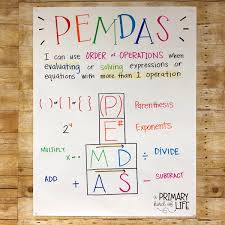 PEMDAS
I can use ORDER of OPERATIONS when
evaluating or solving expressions or
equations with more than 1 operation
( ) · { } · [ ] (P) Parenthesis
2⁴ E# Exponents
MULTIPLY x · * M D ÷ DIVIDE
ADD + A S - SUBTRACT
a PRIMARY
kind of
LIFE